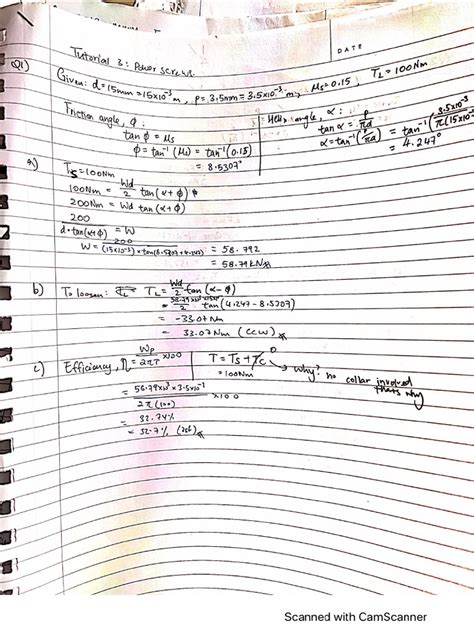 DATE
Tutorial 3: Power screw.
Q1)
Given: d=15mm=15×10⁻³m, p=3.5mm=3.5×10⁻³m, μs=0.15, TL=100Nm
Friction angle, φ:
tan φ = μs
φ = tan⁻¹(μs) = tan⁻¹(0.15)
= 8.5307°
Helix angle, α:
tan α = p/πd
α = tan⁻¹(p/πd) = tan⁻¹(3.5×10⁻³/π(15×10
= 4.247°
a)
Ts=100Nm
100Nm = Wd/2 tan(α+φ)
200Nm = Wd tan(α+φ)
200/d·tan(α+φ) = W
W = 200/(15×10⁻³)×tan(8.5307+4.247) = 58.792
= 58.79kN
b)
To loosen: TL = Wd/2 tan(α-φ)
tan(4.247-8.5307)
= -33.07Nm
= 33.07Nm (CCW)
c)
Efficiency, η = Wp/2πT ×100
= 58.79×10³×3.5×10⁻³/2π(100) ×100
= 32.74%
= 32.7% (3sf)
T = Ts + Tc 0
= 100Nm
why? no collar involved
thats why
Scanned with CamScanner